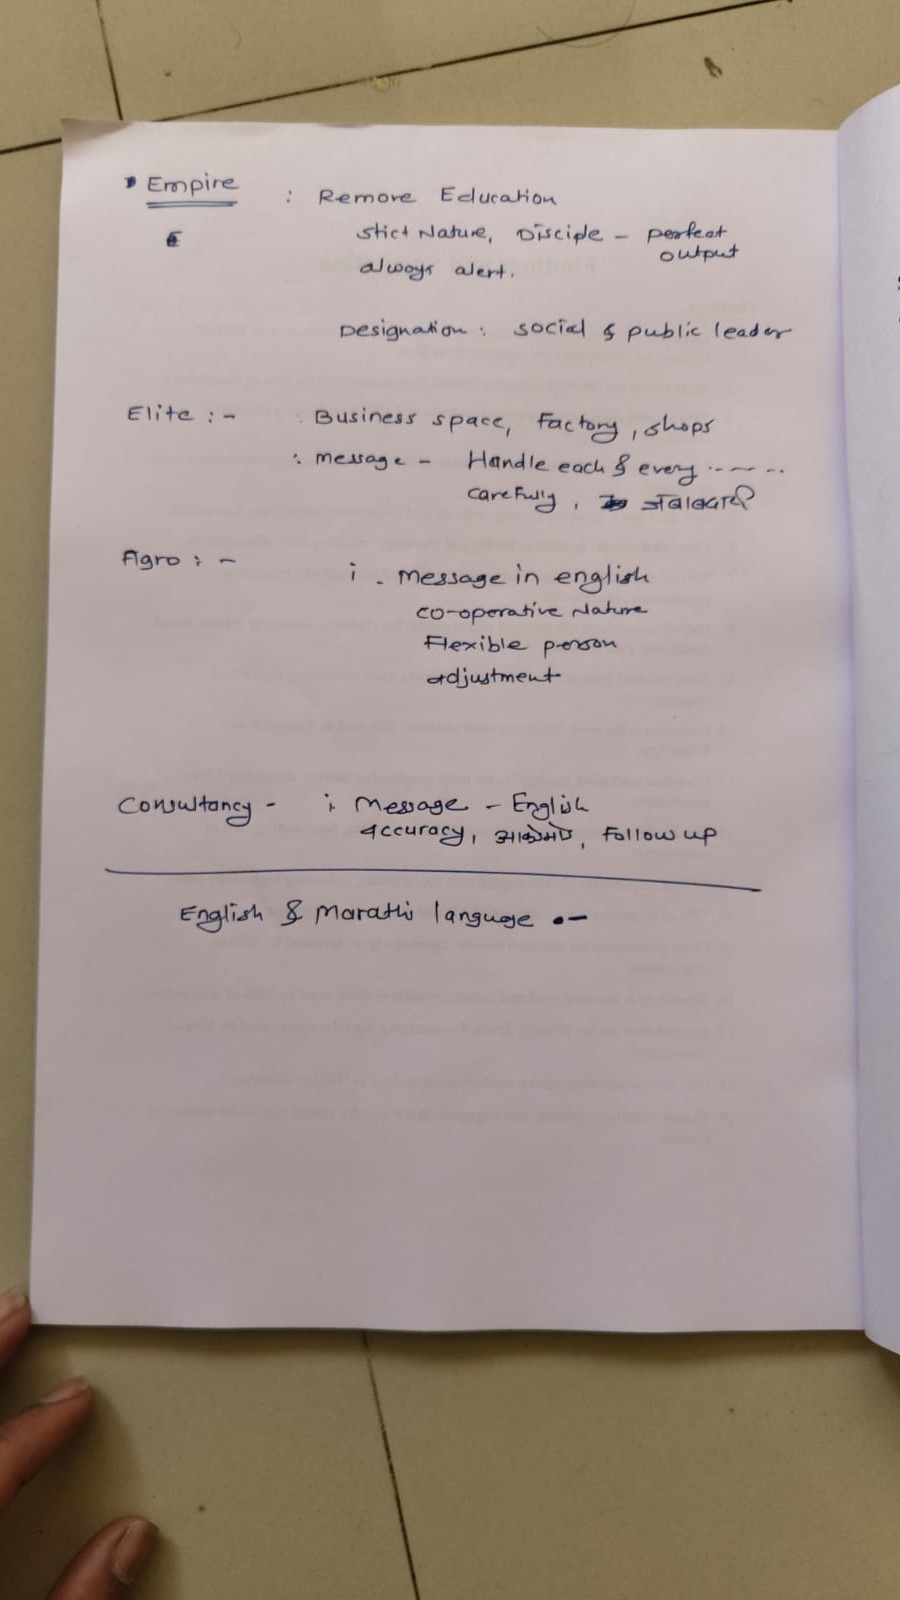 Empire : Remore Education
E
stict Nature, Disciple - perfect
output
always alert.
Designation : social & public leader
Elite : - : Business space, Factory, shops
: message - Handle each & every ------
carefully,
Agro : - i . message in english
co-operative Nature
Flexible person
adjustment
Consultancy - i. Message - English
accuracy, Follow up
English & Marathi language :-